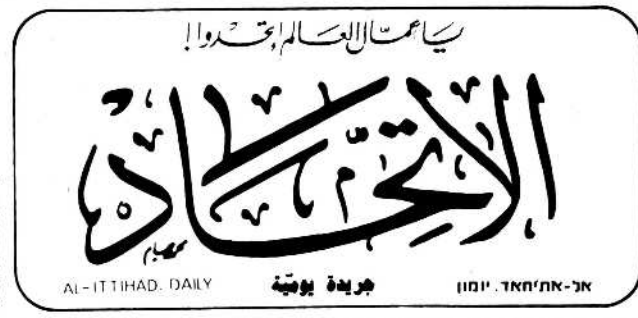 يا عمّال العالم اتحدوا!
الاتحاد
AL-ITTIHAD. DAILY جريدة يوميّة אל-אתיחאד. יומון